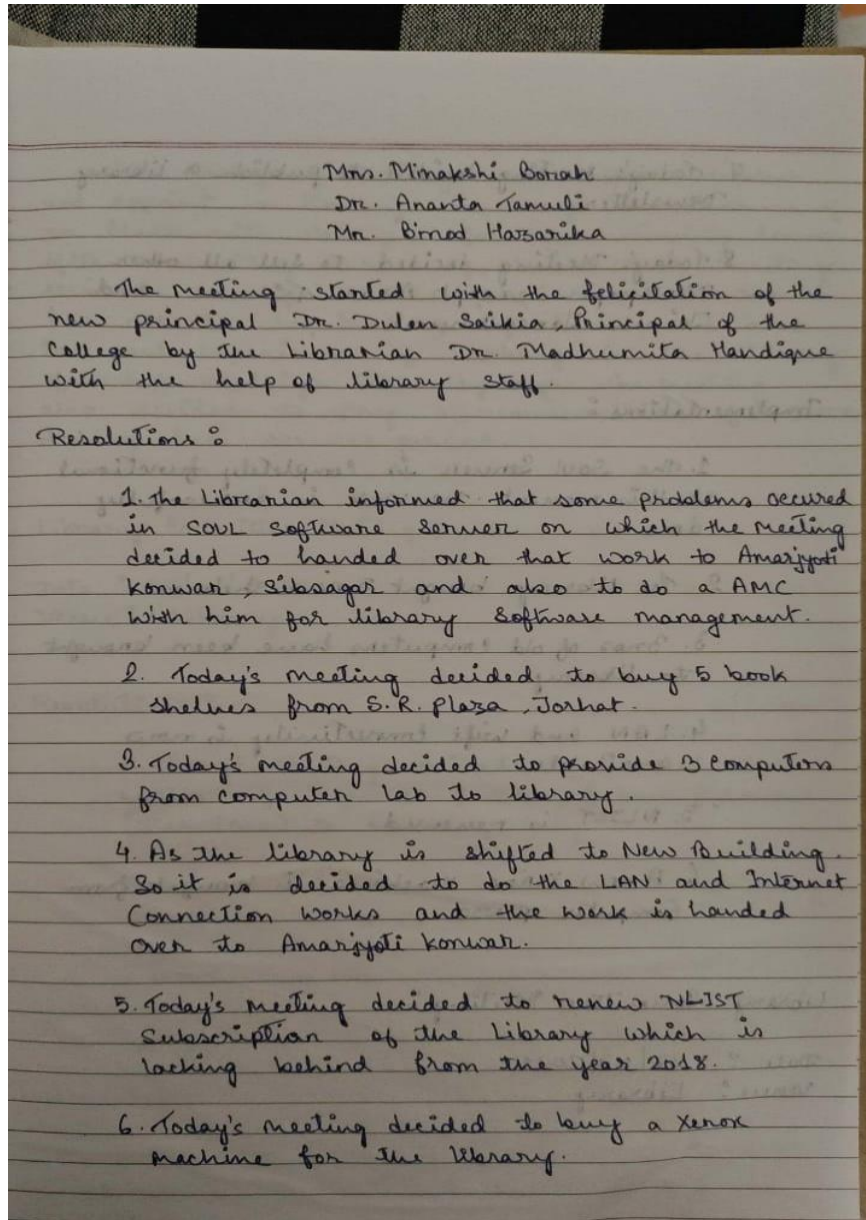 Mrs. Minakshi Borah
Dr. Ananta Tamuli
Mr. Binod Hazarika
The meeting started with the felicitation of the
new principal Dr. Dulen Saikia, Principal of the
College by the Librarian Dr. Madhumita Handique
with the help of library staff.
Resolutions :
1. The Librarian informed that some problems occured
in SOUL Software Server on which the meeting
decided to handed over that work to Amarjyoti
Konwar, Sibsagar and also to do a AMC
with him for library Software management.
2. Today's meeting decided to buy 5 book
shelves from S.R. Plaza, Jorhat.
3. Today's meeting decided to provide 3 computers
from computer lab to library.
4. As the library is shifted to New Building.
So it is decided to do the LAN and Internet
Connection works and the work is handed
over to Amarjyoti Konwar.
5. Today's meeting decided to renew NLIST
Subscription of the Library which is
lacking behind from the year 2018.
6. Today's meeting decided to buy a Xerox
machine for the library.